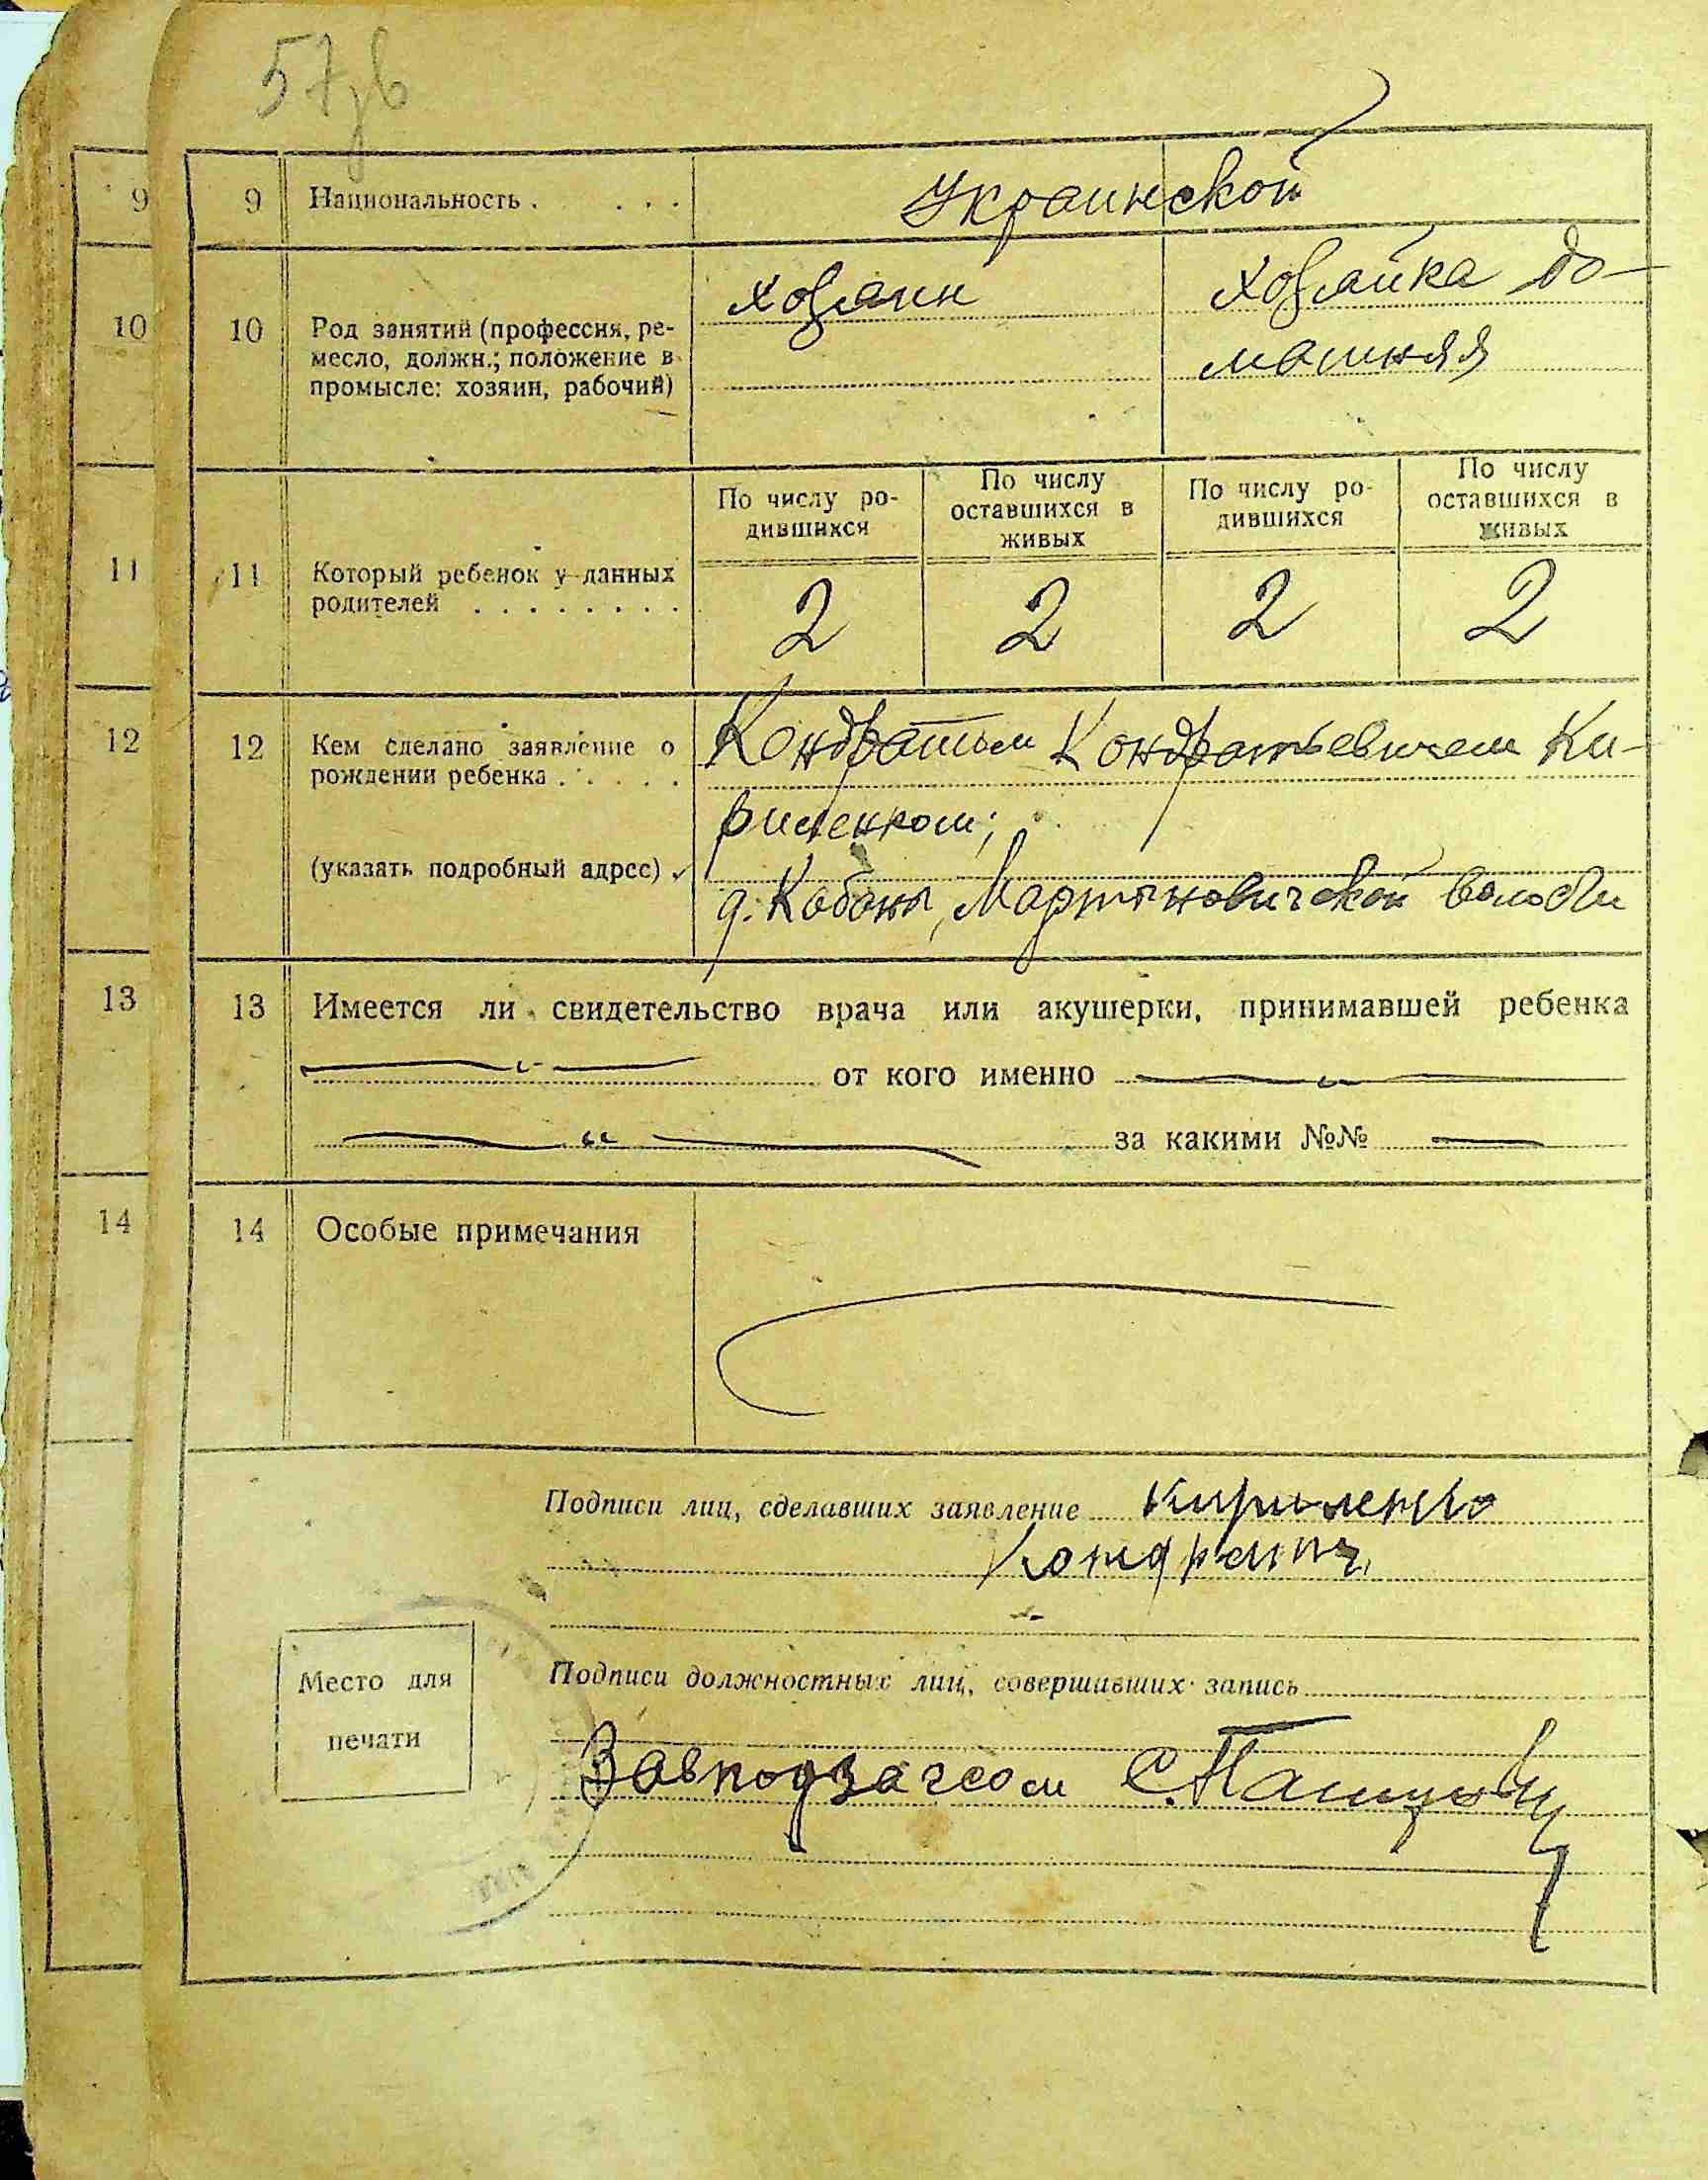 57зв
9 9 Национальность . . . . Украинской
10 10 Род занятий (профессия, ре-
месло, должн.; положение в
промысле: хозяин, рабочий)
хозяин
хозяйка до-
машняя
11 11 Который ребенок у данных
родителей . . . . . . . .
По числу ро-
дившихся
По числу
оставшихся в
живых
По числу ро-
дившихся
По числу
оставшихся в
живых
2 2 2 2
12 12 Кем сделано заявление о
рождении ребенка . . . . .
(указать подробный адрес)
Кондратом Кондратьевичем Ки-
риленком;
д. Кабаны, Мартыновичской волости
13 13 Имеется ли свидетельство врача или акушерки, принимавшей ребенка
от кого именно
за какими №№
14 14 Особые примечания
Подписи лиц, сделавших заявление Кириленко
Кондрат
Место для
печати
Подписи должностных лиц, совершивших запись
Завподзагсом С.